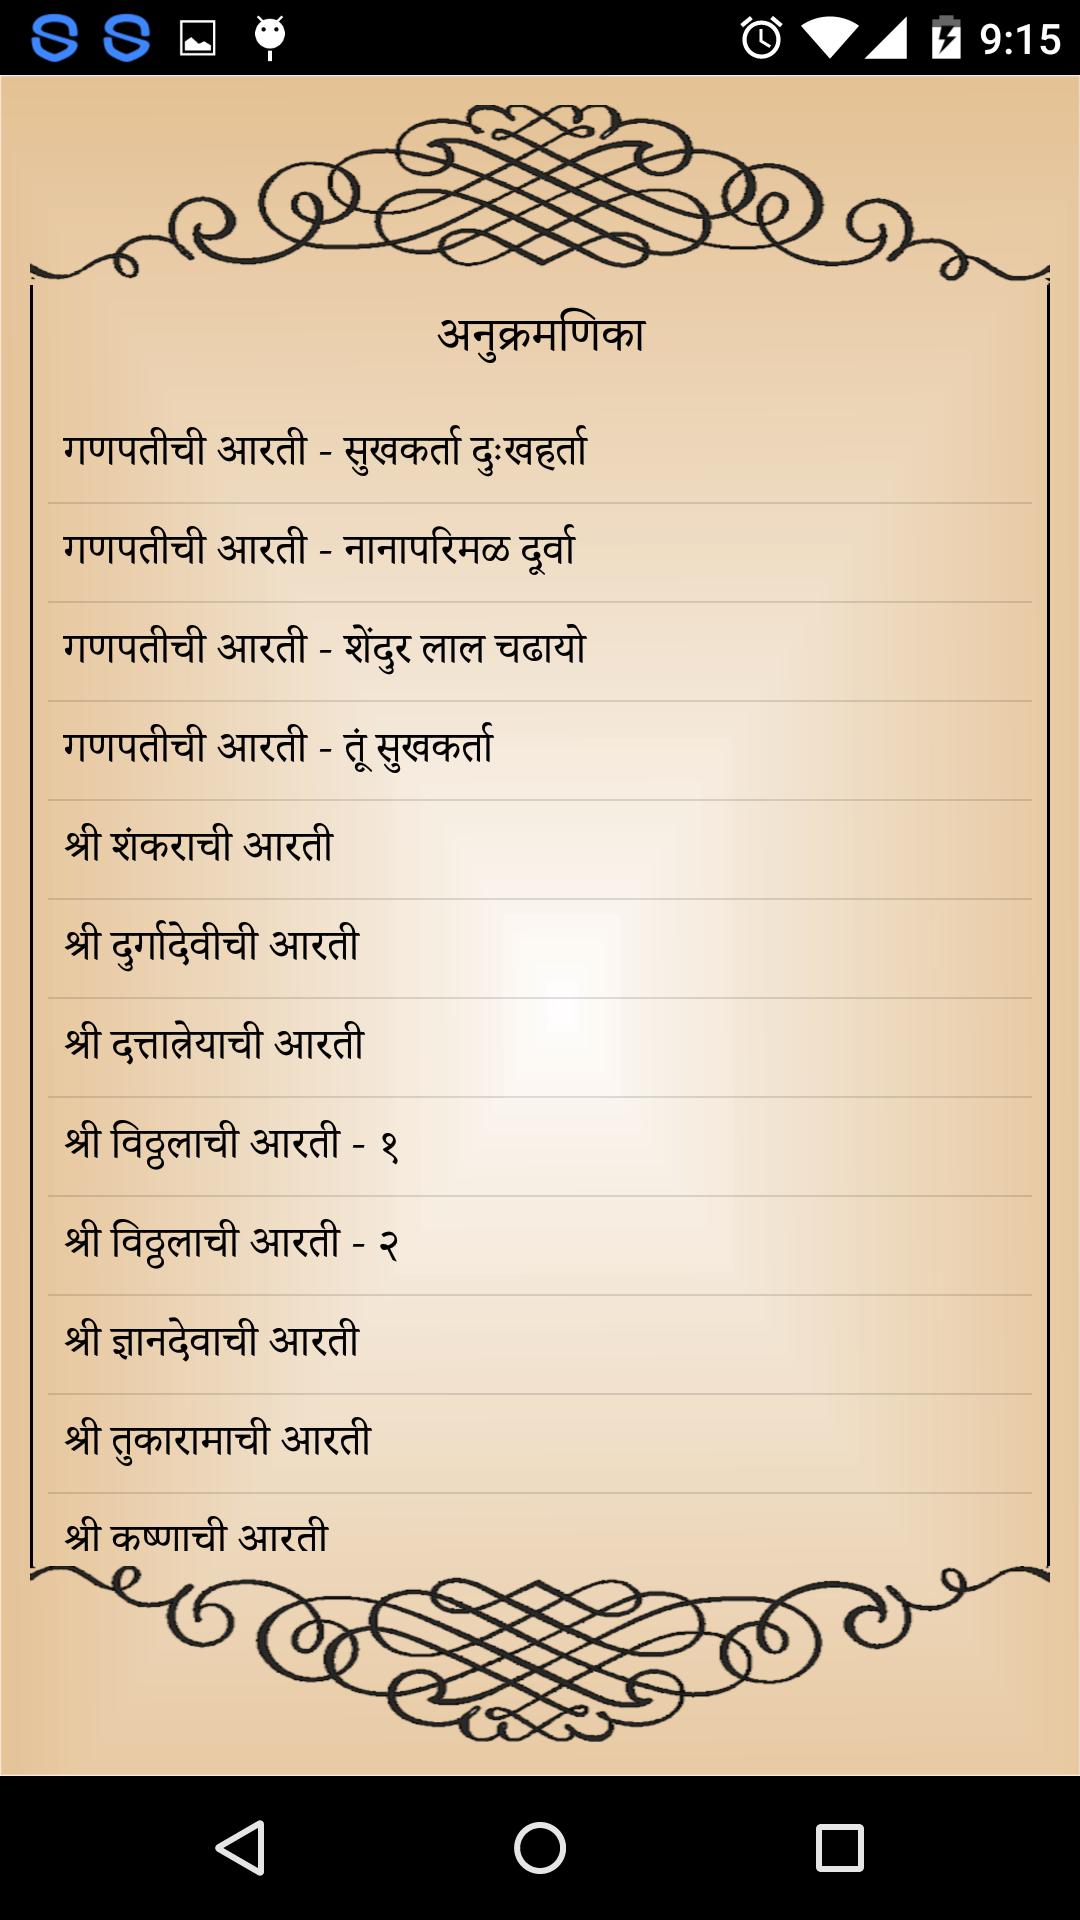 9:15
अनुक्रमणिका
गणपतीची आरती - सुखकर्ता दुःखहर्ता
गणपतीची आरती - नानापरिमळ दूर्वा
गणपतीची आरती - शेंदुर लाल चढायो
गणपतीची आरती - तूं सुखकर्ता
श्री शंकराची आरती
श्री दुर्गादेवीची आरती
श्री दत्तात्रेयाची आरती
श्री विठ्ठलाची आरती - १
श्री विठ्ठलाची आरती - २
श्री ज्ञानदेवाची आरती
श्री तुकारामाची आरती
श्री कृष्णाची आरती